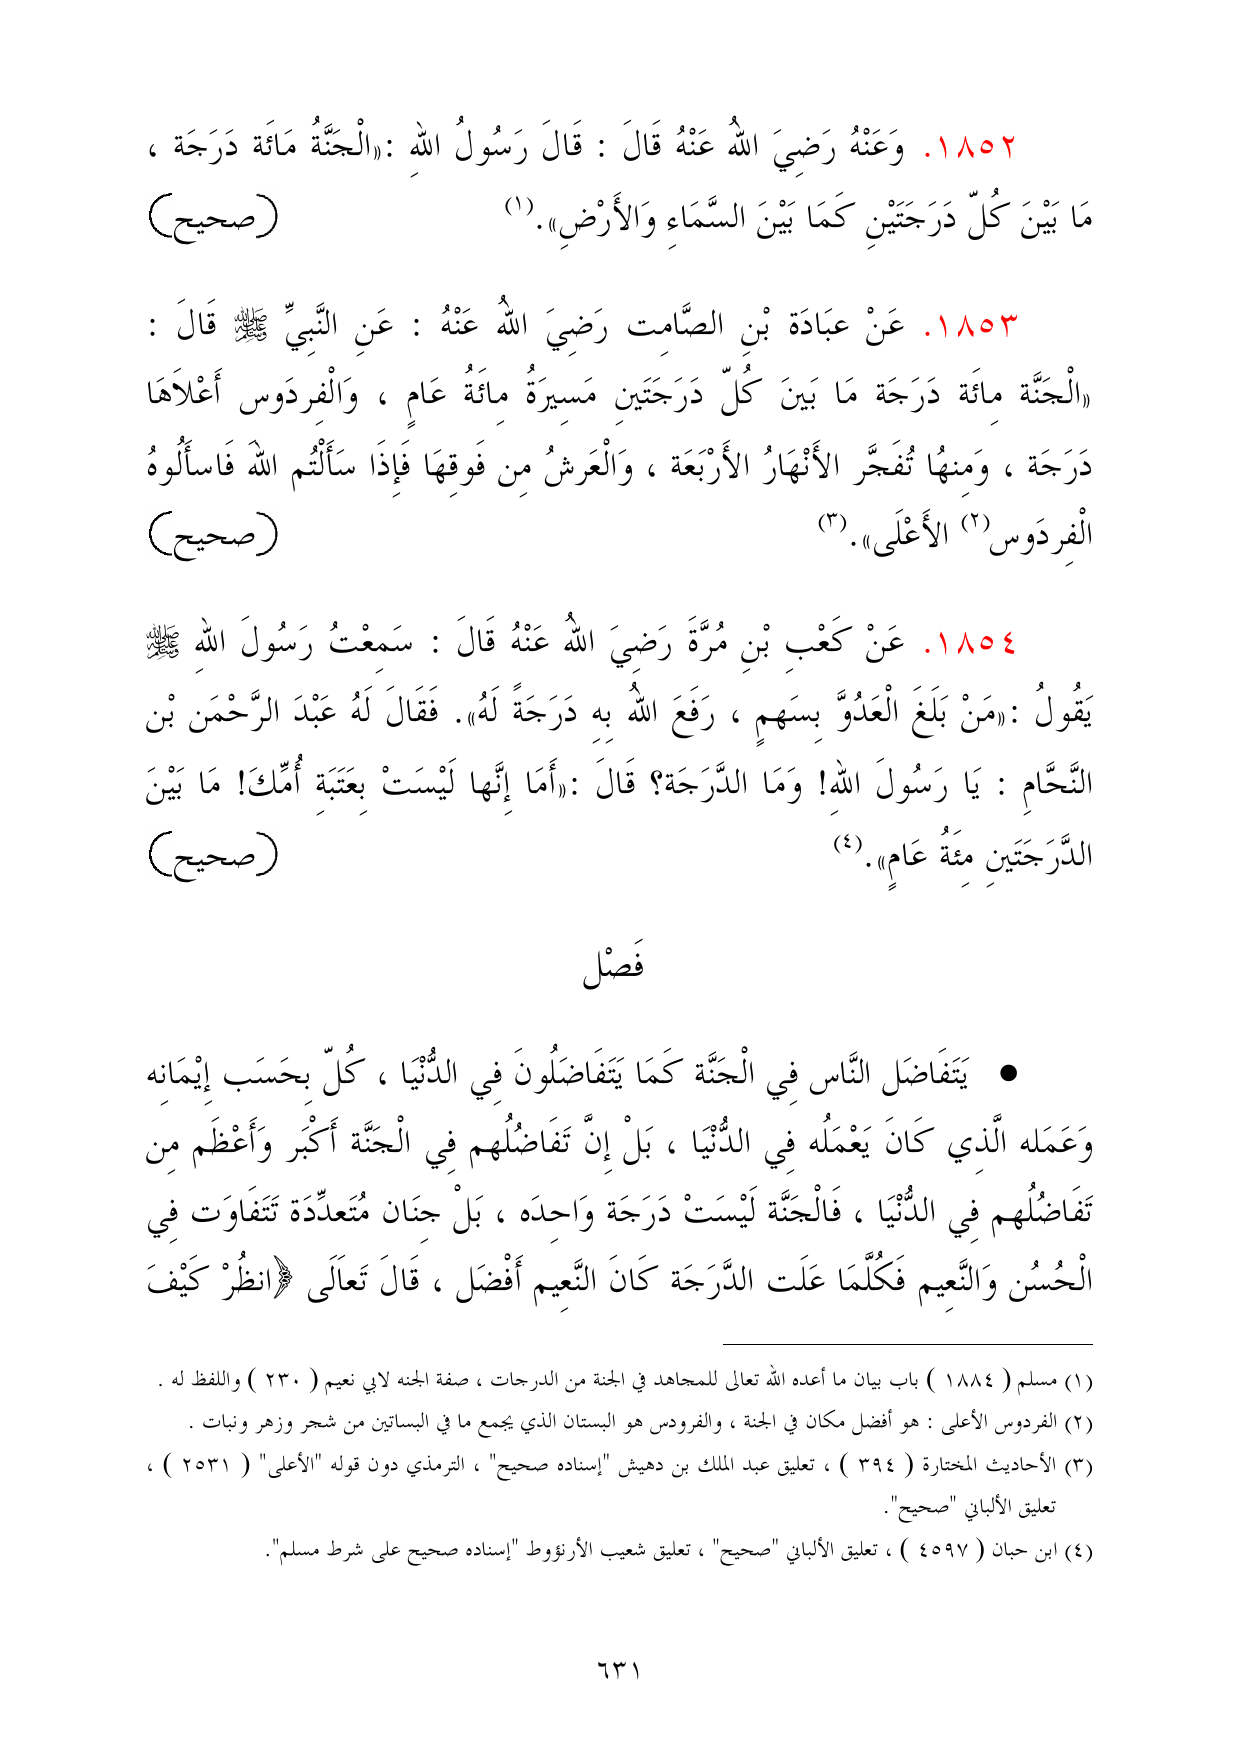 ١٨٥٢. وَعَنْهُ رَضِيَ اللهُ عَنْهُ قَالَ : قَالَ رَسُولُ اللهِ :«الْجَنَّةُ مَائَة دَرَجَة ،
مَا بَيْنَ كُلّ دَرَجَتَيْنِ كَمَا بَيْنَ السَّمَاءِ وَالأَرْضِ».(١) (صحيح)
١٨٥٣. عَنْ عبَادَة بْنِ الصَّامِت رَضِيَ اللهُ عَنْهُ : عَنِ النَّبِيِّ ﷺ قَالَ :
«الْجَنَّة مِائَة دَرَجَة مَا بَينَ كُلّ دَرَجَتَينِ مَسِيرَةُ مِائَةُ عَامٍ ، وَالْفِردَوس أَعْلاَهَا
دَرَجَة ، وَمِنهُا تُفَجَّر الأَنْهَارُ الأَرْبَعَة ، وَالْعَرشُ مِن فَوقِهَا فَإِذَا سَأَلْتُم اللهَ فَاسأَلُوهُ
الْفِردَوس(٢) الأَعْلَى».(٣) (صحيح)
١٨٥٤. عَنْ كَعْبِ بْنِ مُرَّةَ رَضِيَ اللهُ عَنْهُ قَالَ : سَمِعْتُ رَسُولَ اللهِ ﷺ
يَقُولُ :«مَنْ بَلَغَ الْعَدُوَّ بِسَهمٍ ، رَفَعَ اللهُ بِهِ دَرَجَةً لَهُ». فَقَالَ لَهُ عَبْدَ الرَّحْمَن بْن
النَّحَّامِ : يَا رَسُولَ اللهِ! وَمَا الدَّرَجَة؟ قَالَ :«أَمَا إِنَّها لَيْسَتْ بِعَتَبَةِ أُمِّكَ! مَا بَيْنَ
الدَّرَجَتَينِ مِئَةُ عَامٍ».(٤) (صحيح)
فَصْل
● يَتَفَاضَل النَّاس فِي الْجَنَّة كَمَا يَتَفَاضَلُونَ فِي الدُّنْيَا ، كُلّ بِحَسَب إِيْمَانِه
وَعَمَله الَّذِي كَانَ يَعْمَلُه فِي الدُّنْيَا ، بَلْ إِنَّ تَفَاضُلُهم فِي الْجَنَّة أَكْبَر وَأَعْظَم مِن
تَفَاضُلُهم فِي الدُّنْيَا ، فَالْجَنَّة لَيْسَتْ دَرَجَة وَاحِدَه ، بَلْ جِنَان مُتَعدِّدَة تَتَفَاوَت فِي
الْحُسُن وَالنَّعِيم فَكُلَّمَا عَلَت الدَّرَجَة كَانَ النَّعِيم أَفْضَل ، قَالَ تَعَالَى ﴿انظُرْ كَيْفَ
(١) مسلم ( ١٨٨٤ ) باب بيان ما أعده الله تعالى للمجاهد في الجنة من الدرجات ، صفة الجنه لابي نعيم ( ٢٣٠ ) واللفظ له .
(٢) الفردوس الأعلى : هو أفضل مكان في الجنة ، والفرودس هو البستان الذي يجمع ما في البساتين من شجر وزهر ونبات .
(٣) الأحاديث المختارة ( ٣٩٤ ) ، تعليق عبد الملك بن دهيش "إسناده صحيح" ، الترمذي دون قوله "الأعلى" ( ٢٥٣١ ) ،
تعليق الألباني "صحيح".
(٤) ابن حبان ( ٤٥٩٧ ) ، تعليق الألباني "صحيح" ، تعليق شعيب الأرنؤوط "إسناده صحيح على شرط مسلم".
٦٣١